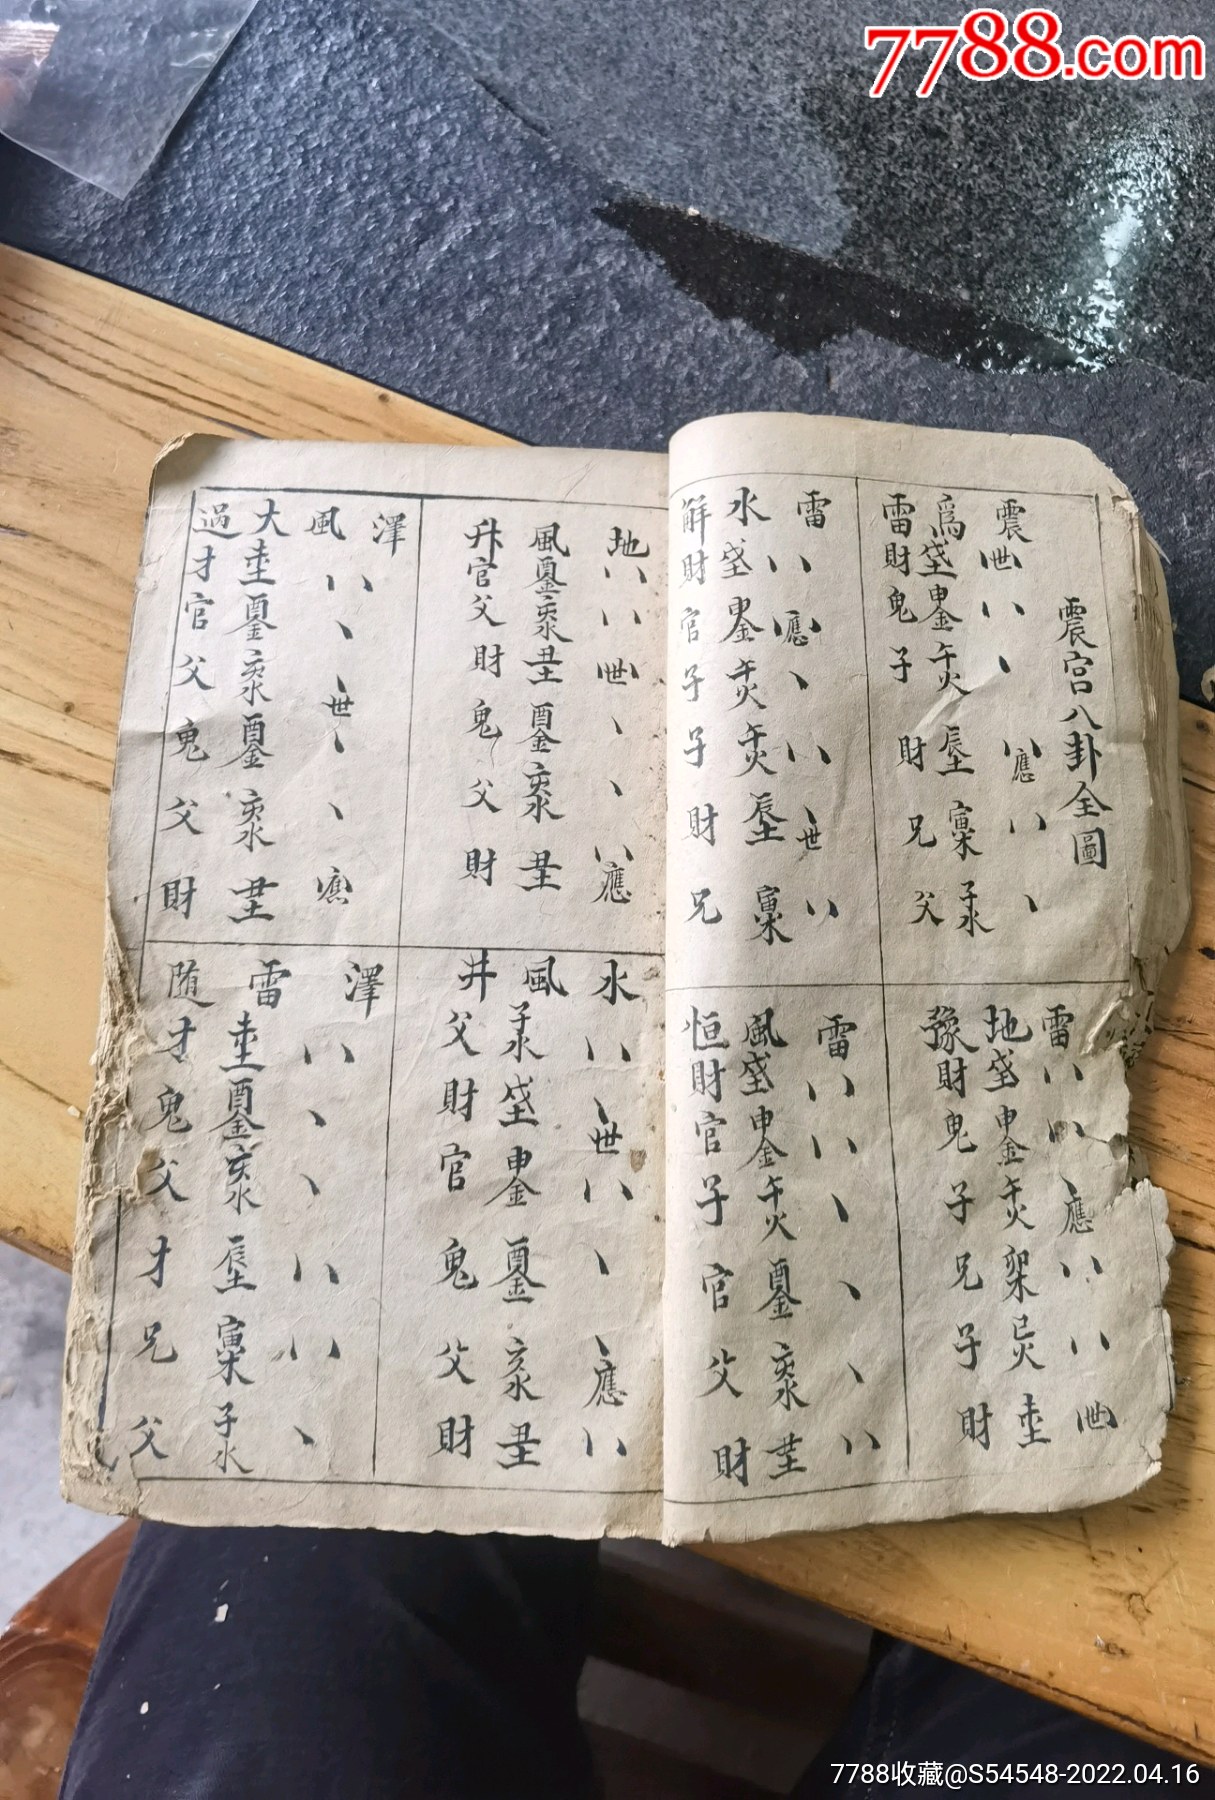 7788.com
震宮八卦全圖
震世應
爲戌土申金午火辰土寅木子水
雷財鬼子財兄父
雷應世
地戌土申金午火卯木巳火未土
豫財鬼子兄子財
雷應世
水戌土申金午火午火辰土寅木
解財官子子財兄
雷
風戌土申金午火酉金亥水丑土
恒財官子官父財
地世應
風酉金亥水丑土酉金亥水丑土
升官父財鬼父財
水世應
風子水戌土申金酉金亥水丑土
井父財官鬼父財
澤
風世應
大未土酉金亥水酉金亥水丑土
過才官父鬼父財
澤
雷未土酉金亥水辰土寅木子水
随才鬼父才兄父
7788收藏@S54548-2022.04.16